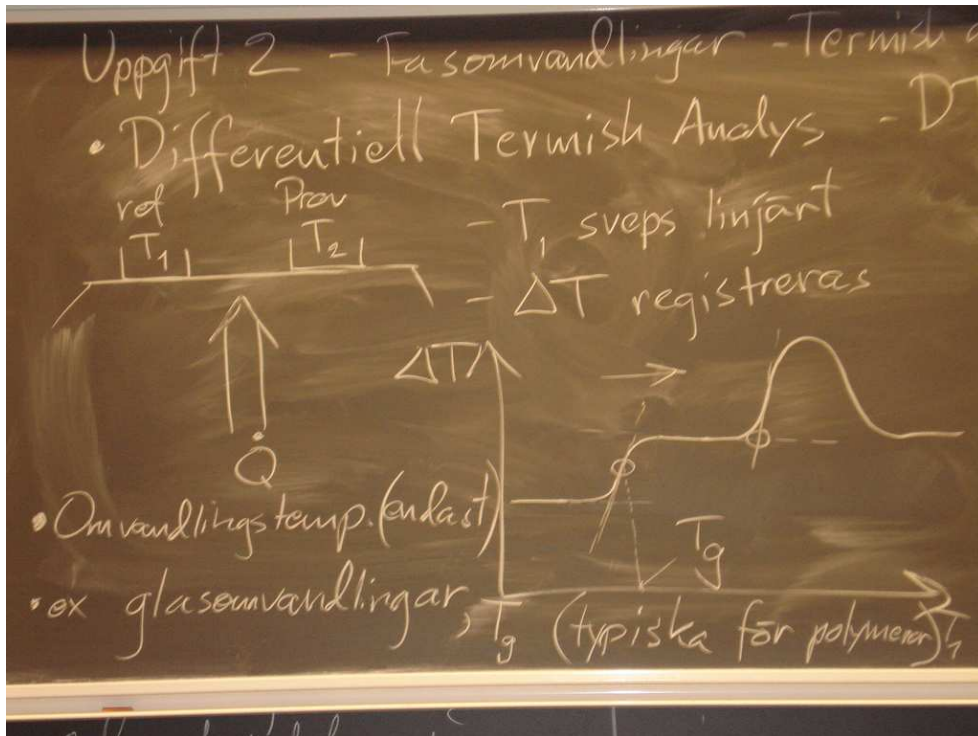 Uppgift 2 - Fasomvandlingar - Termish
• Differentiell Termish Analys - DT
ref Prov
T₁ T₂
- T₁ sveps linjärt
- ΔT registreras
ΔT
Q̇
• Omvandlingstemp. (endast)
Tg
• ex glasomvandlingar, Tg (typiska för polymerer)
T₁